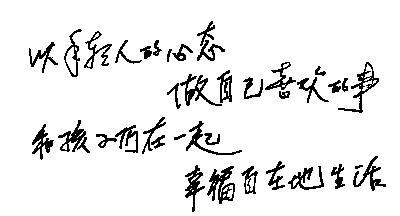 以年轻人的心态
做自己喜欢的事
和孩子们在一起
幸福自在地生活